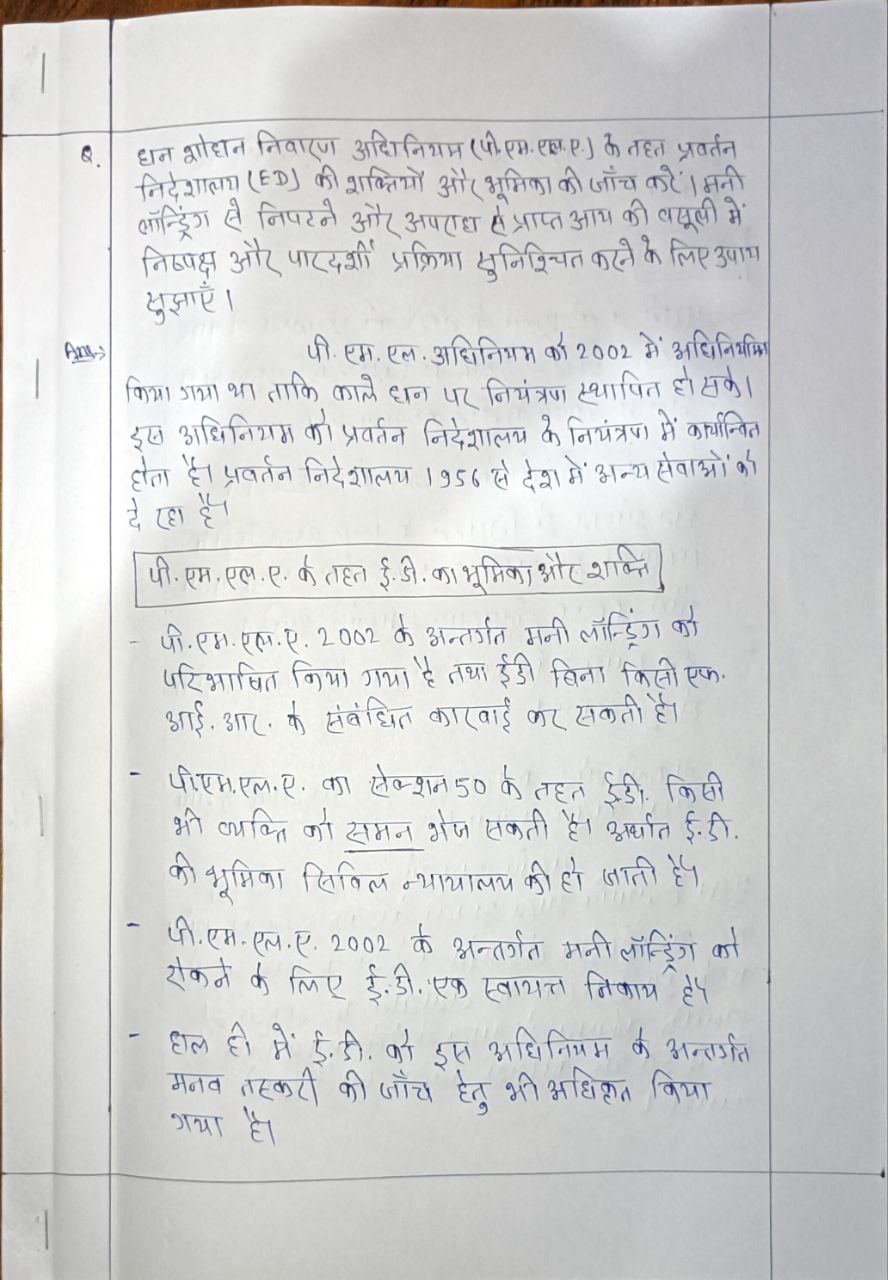 Q. धन शोधन निवारण अधिनियम (पी.एम.एल.ए.) के तहत प्रवर्तन
निदेशालय (ED) की शक्तियों और भूमिका की जाँच करें। मनी
लॉन्ड्रिंग से निपटने और अपराध से प्राप्त आय की वसूली में
निष्पक्ष और पारदर्शी प्रक्रिया सुनिश्चित करने के लिए उपाय
सुझाएँ।
Ans→ पी. एम. एल. अधिनियम को 2002 में अधिनियमित
किया गया था ताकि काले धन पर नियंत्रण स्थापित हो सके।
इस अधिनियम को प्रवर्तन निदेशालय के नियंत्रण में कार्यान्वित
होता है। प्रवर्तन निदेशालय 1956 से देश में अन्य सेवाओं को
दे रहा है।
पी. एम. एल. ए. के तहत ई. डी. का भूमिका और शक्ति
- पी. एम. एल. ए. 2002 के अन्तर्गत मनी लॉन्ड्रिंग को
परिभाषित किया गया है तथा ईडी बिना किसी एफ.
आई. आर. के संबंधित कारवाई कर सकती है।
- पी.एम.एल.ए. का सेक्शन 50 के तहत ई.डी. किसी
भी व्यक्ति को समन भेज सकती है। अर्थात ई.डी.
की भूमिका सिविल न्यायालय की हो जाती है।
- पी.एम.एल.ए. 2002 के अन्तर्गत मनी लॉन्ड्रिंग को
रोकने के लिए ई.डी. एक स्वायत्त निकाय है।
- हाल ही में ई.डी. को इस अधिनियम के अन्तर्गत
मानव तस्करी की जाँच हेतु भी अधिकृत किया
गया है।